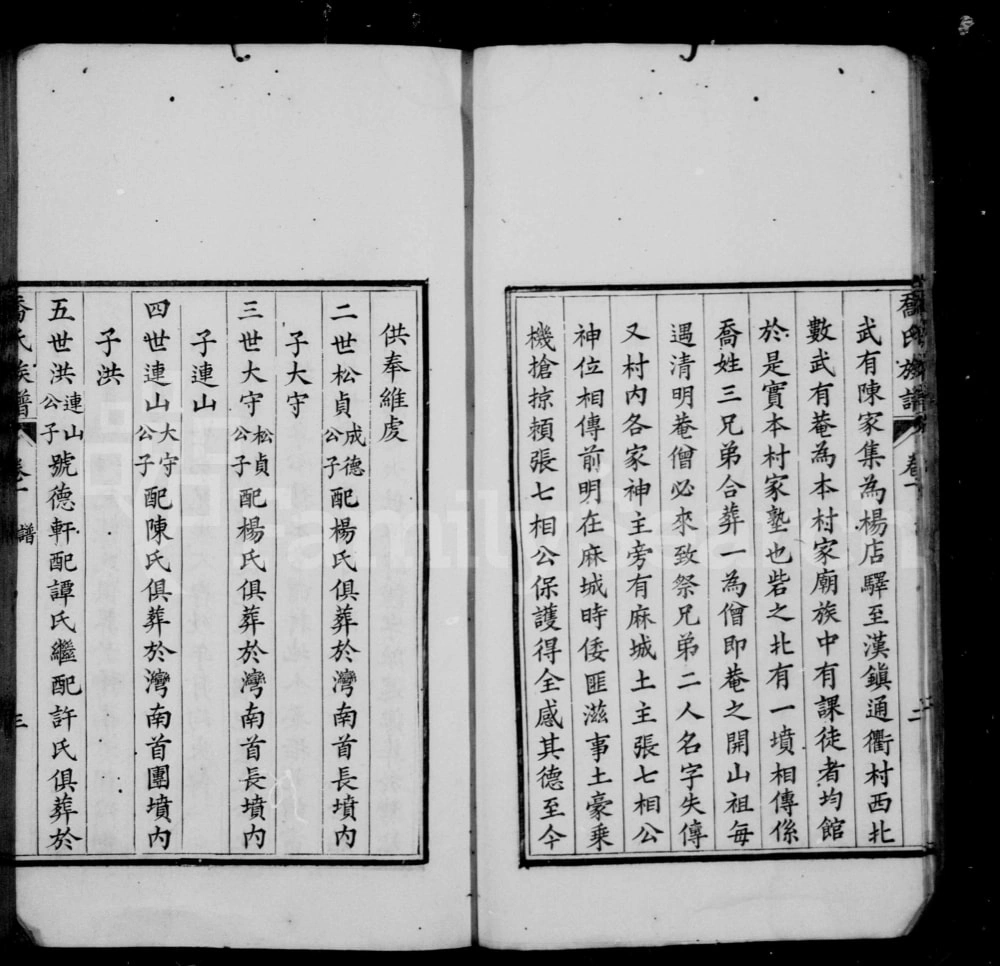 喬氏族譜 卷一
武有陳家集為楊店驛至漢鎮通衢村西北
數武有菴為本村家廟族中有課徒者均館
於是實本村家塾也砦之北有一墳相傳係
喬姓三兄弟合葬一為僧即菴之開山祖每
遇清明菴僧必來致祭兄弟二人名字失傳
又村內各家神主旁有麻城土主張七相公
神位相傳前明在麻城時倭匪滋事土豪乘
機搶掠賴張七相公保護得全感其德至今
供奉維虔
二世松貞成德公子配楊氏俱葬於灣南首長墳內
子大守
三世大守松貞公子配楊氏俱葬於灣南首長墳內
子連山
四世連山大守公子配陳氏俱葬於灣南首團墳內
子洪
五世洪連山公子號德軒配譚氏繼配許氏俱葬於
喬氏族譜 卷一 譜 三
FamilySearch